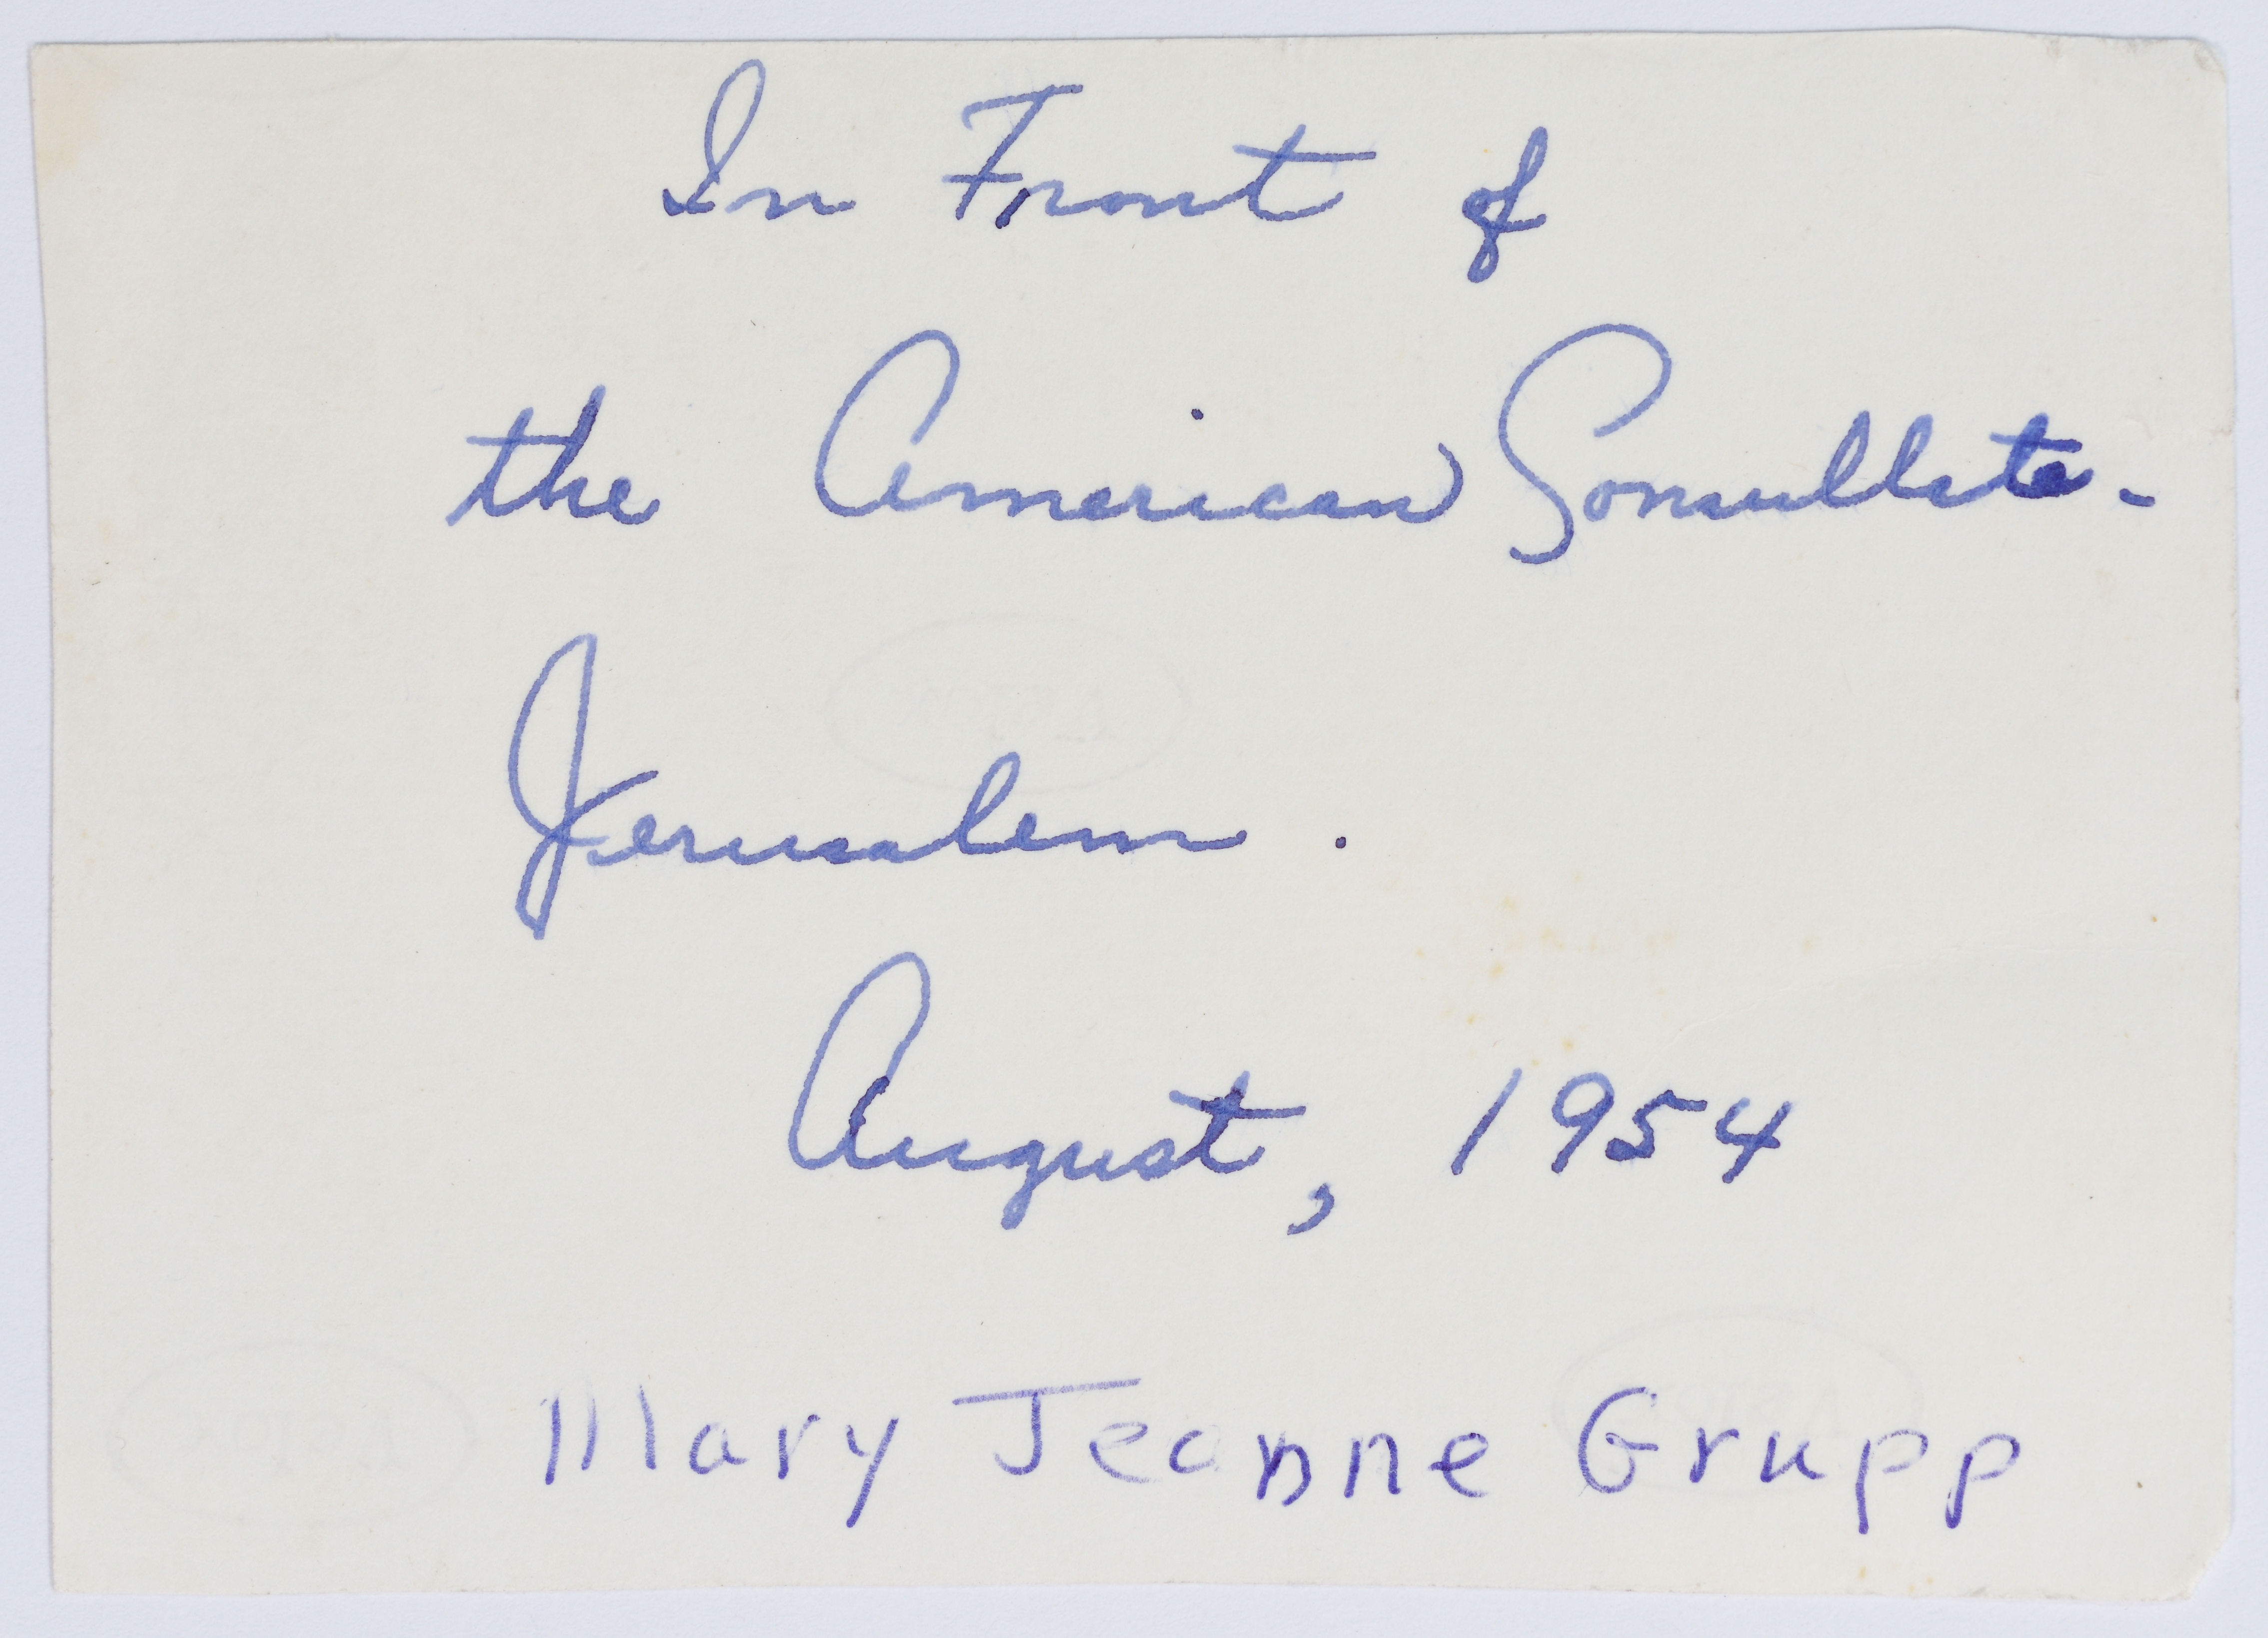 In Front of
the American Consullate-
Jerusalem.
August, 1954
Mary Jeanne Grupp